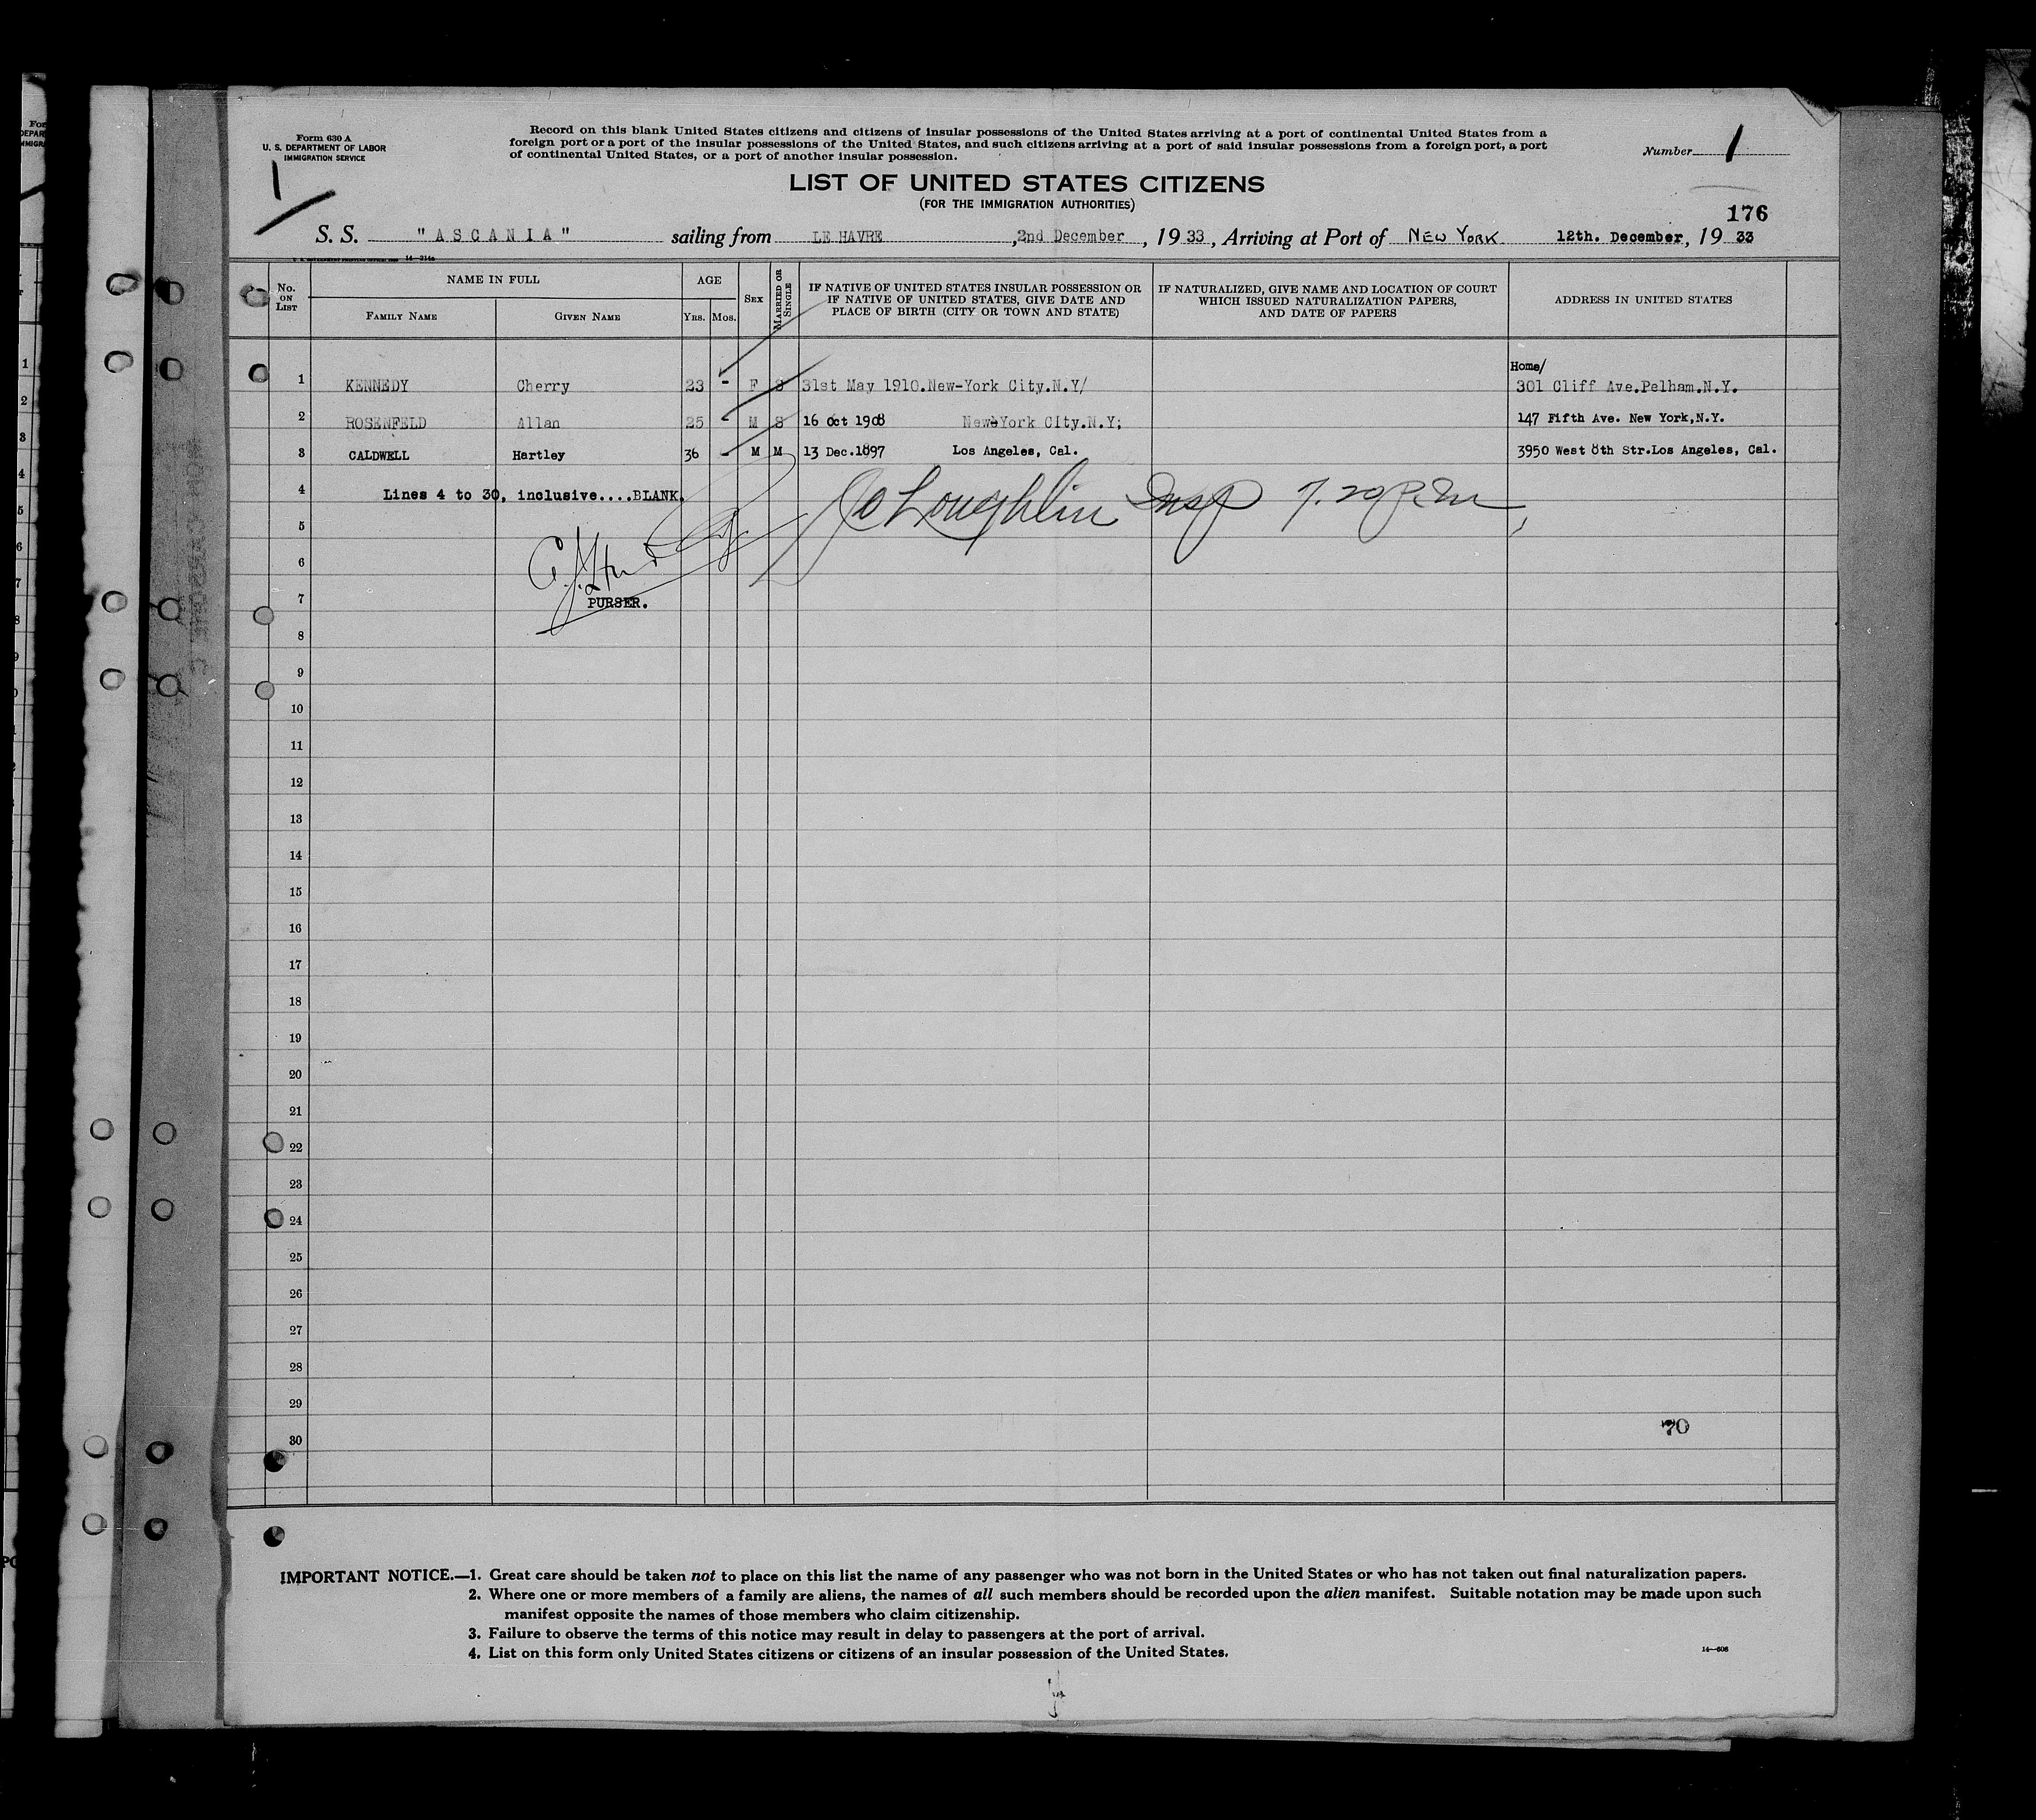 Form 630 A
U. S. DEPARTMENT OF LABOR
IMMIGRATION SERVICE
1
Record on this blank United States citizens and citizens of insular possessions of the United States arriving at a port of continental United States from a
foreign port or a port of the insular possessions of the United States, and such citizens arriving at a port of said insular possessions from a foreign port, a port
of continental United States, or a port of another insular possession.
Number 1
LIST OF UNITED STATES CITIZENS
(FOR THE IMMIGRATION AUTHORITIES)
176
S. S. "ASCANIA" sailing from LE HAVRE, 2nd December, 1933, Arriving at Port of NEW YORK 12th. December, 1933
No. ON LIST
NAME IN FULL
FAMILY NAME
GIVEN NAME
AGE
YRS. MOS.
SEX
MARRIED OR SINGLE
IF NATIVE OF UNITED STATES INSULAR POSSESSION OR
IF NATIVE OF UNITED STATES, GIVE DATE AND
PLACE OF BIRTH (CITY OR TOWN AND STATE)
IF NATURALIZED, GIVE NAME AND LOCATION OF COURT
WHICH ISSUED NATURALIZATION PAPERS,
AND DATE OF PAPERS
ADDRESS IN UNITED STATES
Home/
1 KENNEDY Cherry 23 - F S 31st May 1910.New-York City.N.Y/ 301 Cliff Ave.Pelham.N.Y.
2 ROSENFELD Allan 25 - M S 16 Oct 1908 New-York CIty.N.Y; 147 Fifth Ave. New York,N.Y.
3 CALDWELL Hartley 36 - M M 13 Dec.1897 Los Angeles, Cal. 3950 West 8th Str.Los Angeles, Cal.
4 Lines 4 to 30, inclusive....BLANK. Loughlin Insp 7.20 P.M
5
6
7 PURSER.
8
9
10
11
12
13
14
15
16
17
18
19
20
21
22
23
24
25
26
27
28
29
70
30
IMPORTANT NOTICE.—1. Great care should be taken not to place on this list the name of any passenger who was not born in the United States or who has not taken out final naturalization papers.
2. Where one or more members of a family are aliens, the names of all such members should be recorded upon the alien manifest. Suitable notation may be made upon such
manifest opposite the names of those members who claim citizenship.
3. Failure to observe the terms of this notice may result in delay to passengers at the port of arrival.
4. List on this form only United States citizens or citizens of an insular possession of the United States.
14—608